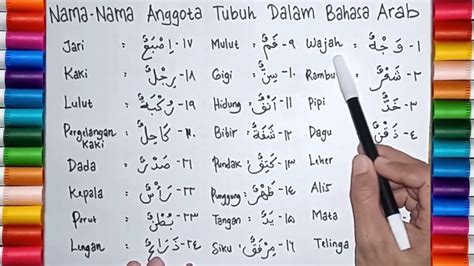 Nama-Nama Anggota Tubuh Dalam Bahasa Arab
Jari : ١٧- اِصْبَعٌ Mulut : ٩- فَمٌ Wajah : ١- وَجْهٌ
Kaki : ١٨- رِجْلٌ Gigi : ١٠- سِنٌّ Rambu ٢- شَعْرٌ
Lulut : ١٩- رُكْبَةٌ Hidung : ١١- أَنْفٌ Pipi ٣- خَدٌّ
Pergelangan : ٢٠- كَاحِلٌ Bibir : ١٢- شَفَةٌ Dagu ٤- ذَقَنٌ
kaki
Dada : ٢١- صَدْرٌ Pundak : ١٣- كَتِفٌ Leher
Kepala : ٢٢- رَأْسٌ Punggung : ١٤- ظَهْرٌ Alis
Perut : ٢٣- بَطْنٌ Tangan : ١٥- يَدٌ Mata
Lengan : ٢٤- ذِرَاعٌ Siku : ١٦- مِرْفَقٌ Telinga